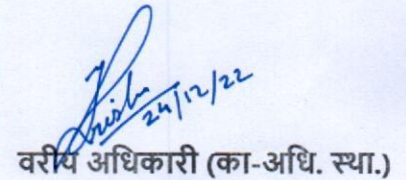 24/12/22
वरीय अधिकारी (का-अधि. स्था.)